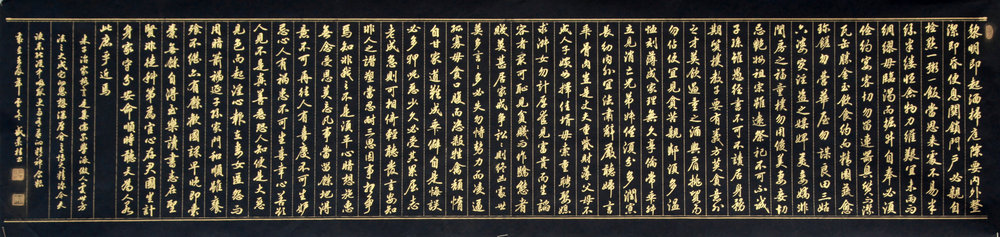 黎明即起洒掃庭除要內外整
潔即昏便息關鎖門戶必親自
檢點一粥一飯當思來處不易半
絲半縷恆念物力維艱宜未雨而
綢繆毋臨渴而掘井自奉必須
儉約宴客切勿留連器具質而潔
瓦缶勝金玉飲食約而精園蔬愈
珍饈勿營華屋勿謀良田三姑
六婆實淫盜之媒婢美妾嬌非
閨房之福奴僕勿用俊美妻妾切
忌艷妝祖宗雖遠祭祀不可不誠
子孫雖愚經書不可不讀居身務
期質樸教子要有義方莫貪意外
之財莫飲過量之酒與肩挑貿易
勿佔便宜見貧苦親鄰須多溫
恤刻薄成家理無久享倫常乖舛
立見消亡兄弟叔姪須分多潤寡
長幼內外宜法肅辭嚴聽婦言
乖骨肉豈是丈夫重貲財薄父母不
成人子嫁女擇佳婿毋索重聘娶媳
求淑女勿計厚奩見富貴而生諂
容者最可恥見貧窮而作驕態者
賤莫甚居家戒爭訟訟則終凶處世
戒多言言多必失勿恃勢力而凌逼
孤寡毋貪口腹而恣殺牲禽頹惰
自甘家道難成乖僻自是悔誤
必多狎昵惡少久必受其累屈志
老成急則可相倚輕聽發言安知
非人之譖愬當忍耐三思因事相爭
焉知非我之不是須平心暗想施惠
無念受恩莫忘凡事當留餘地得
意不宜再往人有喜慶不可生妒
忌心人有禍患不可生喜幸心善欲
人見不是真善惡恐人知便是大惡
見色而起淫心報在妻女匿怨而
用暗箭禍延子孫家門和順雖饔
飧不繼亦有餘歡國課早完即囊
橐無餘自得至樂讀書志在聖
賢非徒科第為官心存君國豈計
身家守分安命順時聽天為人若
此庶乎近焉